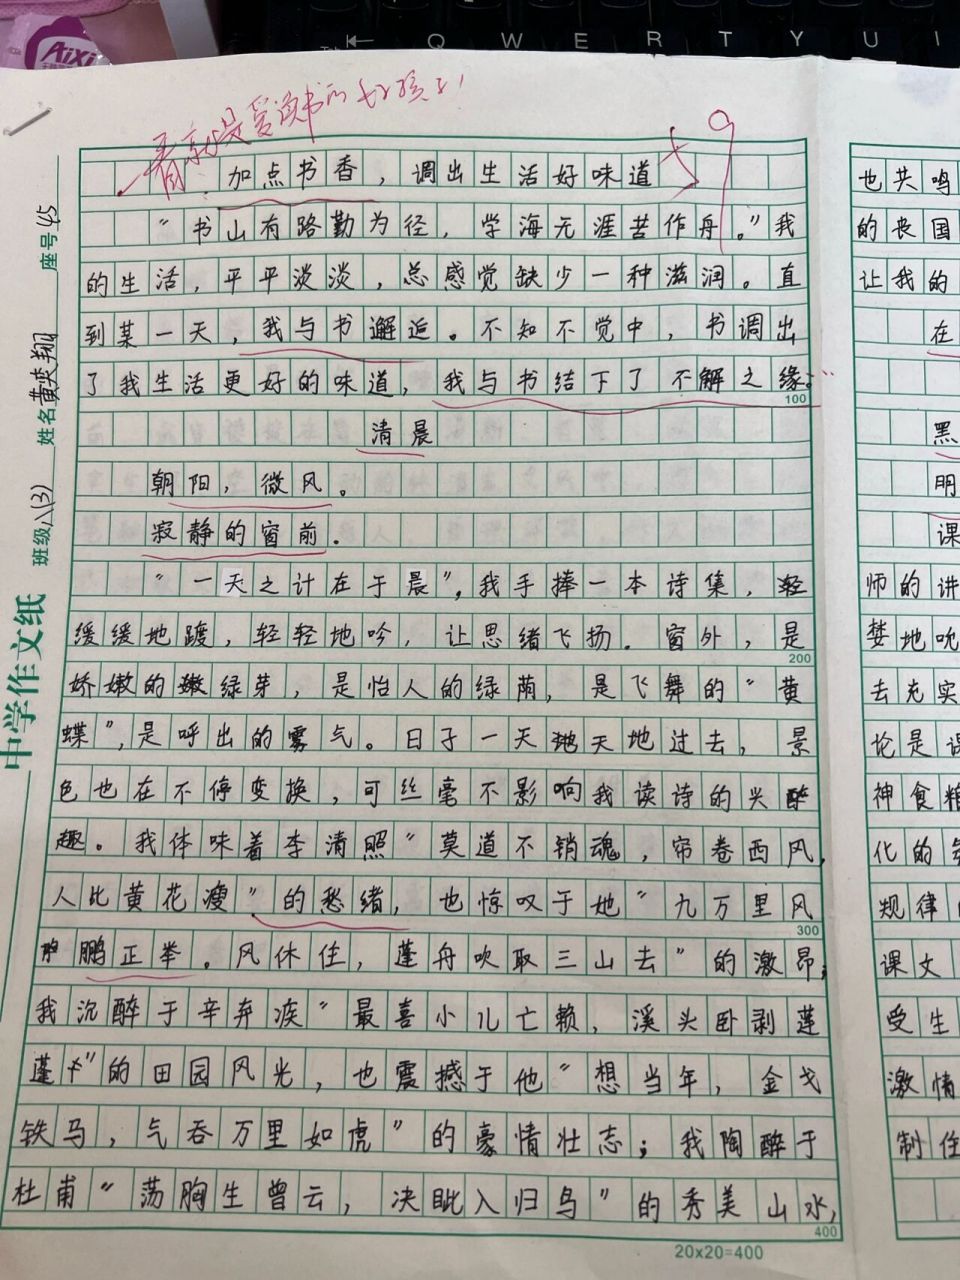 AiXi
Q W E R T Y U I
一看就是爱读书的女孩子!
59
加点书香，调出生活好味道
“书山有路勤为径，学海无涯苦作舟。”我
的生活，平平淡淡，总感觉缺少一种滋润。直
到某一天，我与书邂逅。不知不觉中，书调出
了我生活更好的味道，我与书结下了不解之缘。
100
清晨
朝阳，微风。
寂静的窗前。
“一天之计在于晨”，我手捧一本诗集，
缓缓地踱，轻轻地吟，让思绪飞扬。窗外，是
200
娇嫩的嫩绿芽，是怡人的绿荫，是飞舞的“黄
蝶”，是呼出的雾气。日子一天天地过去，景
色也在不停变换，可丝毫不影响我读诗的兴
趣。我体味着李清照“莫道不销魂，帘卷西风，
人比黄花瘦”的愁绪，也惊叹于她“九万里风
300
鹏正举。风休住，蓬舟吹取三山去”的激昂；
我沉醉于辛弃疾“最喜小儿亡赖，溪头卧剥莲
蓬”的田园风光，也震撼于他“想当年，金戈
铁马，气吞万里如虎”的豪情壮志；我陶醉于
杜甫“荡胸生曾云，决眦入归鸟”的秀美山水，
400
20×20=400
中学作文纸
班级 八(3) 姓名 黄英翔 座号 45
也共鸣
的丧国
让我的
在
黑
明
课
师的讲
婪地吮
去充实
论是课
神食粮
化的
规律
课文
受生
激情
制住